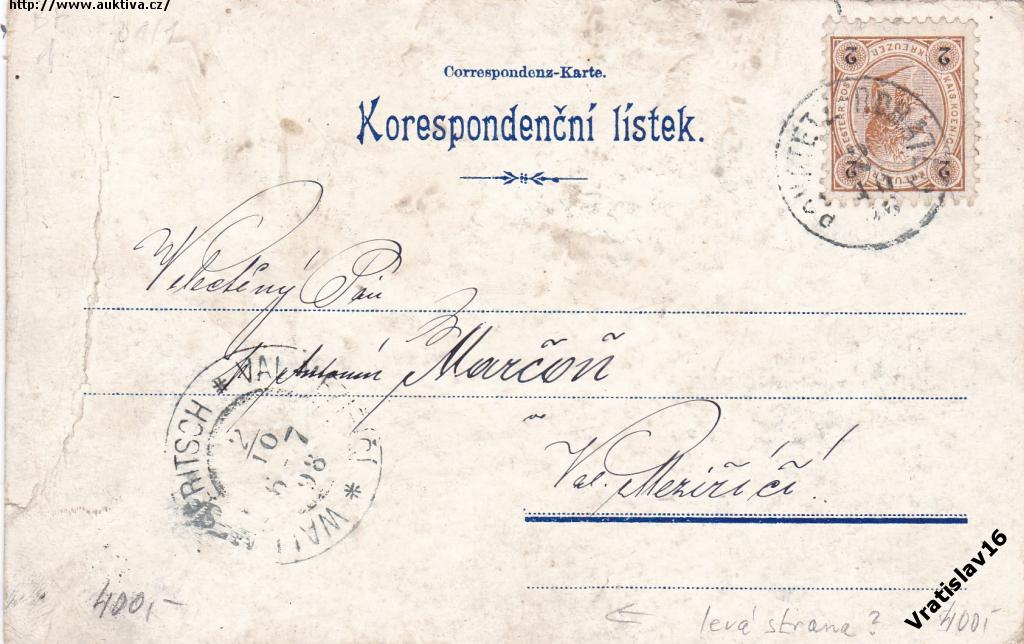 http://www.auktiva.cz/
Correspondenz-Karte.
Korespondenční lístek.
2 KREUZER 2
2 KREUZER 2
Velectěný Pán
Antonín Marčoň
v
Val. Meziříčí.
2/10
6-7
98
* WALL
400,-
← levá strana? 400,-
Vratislav16